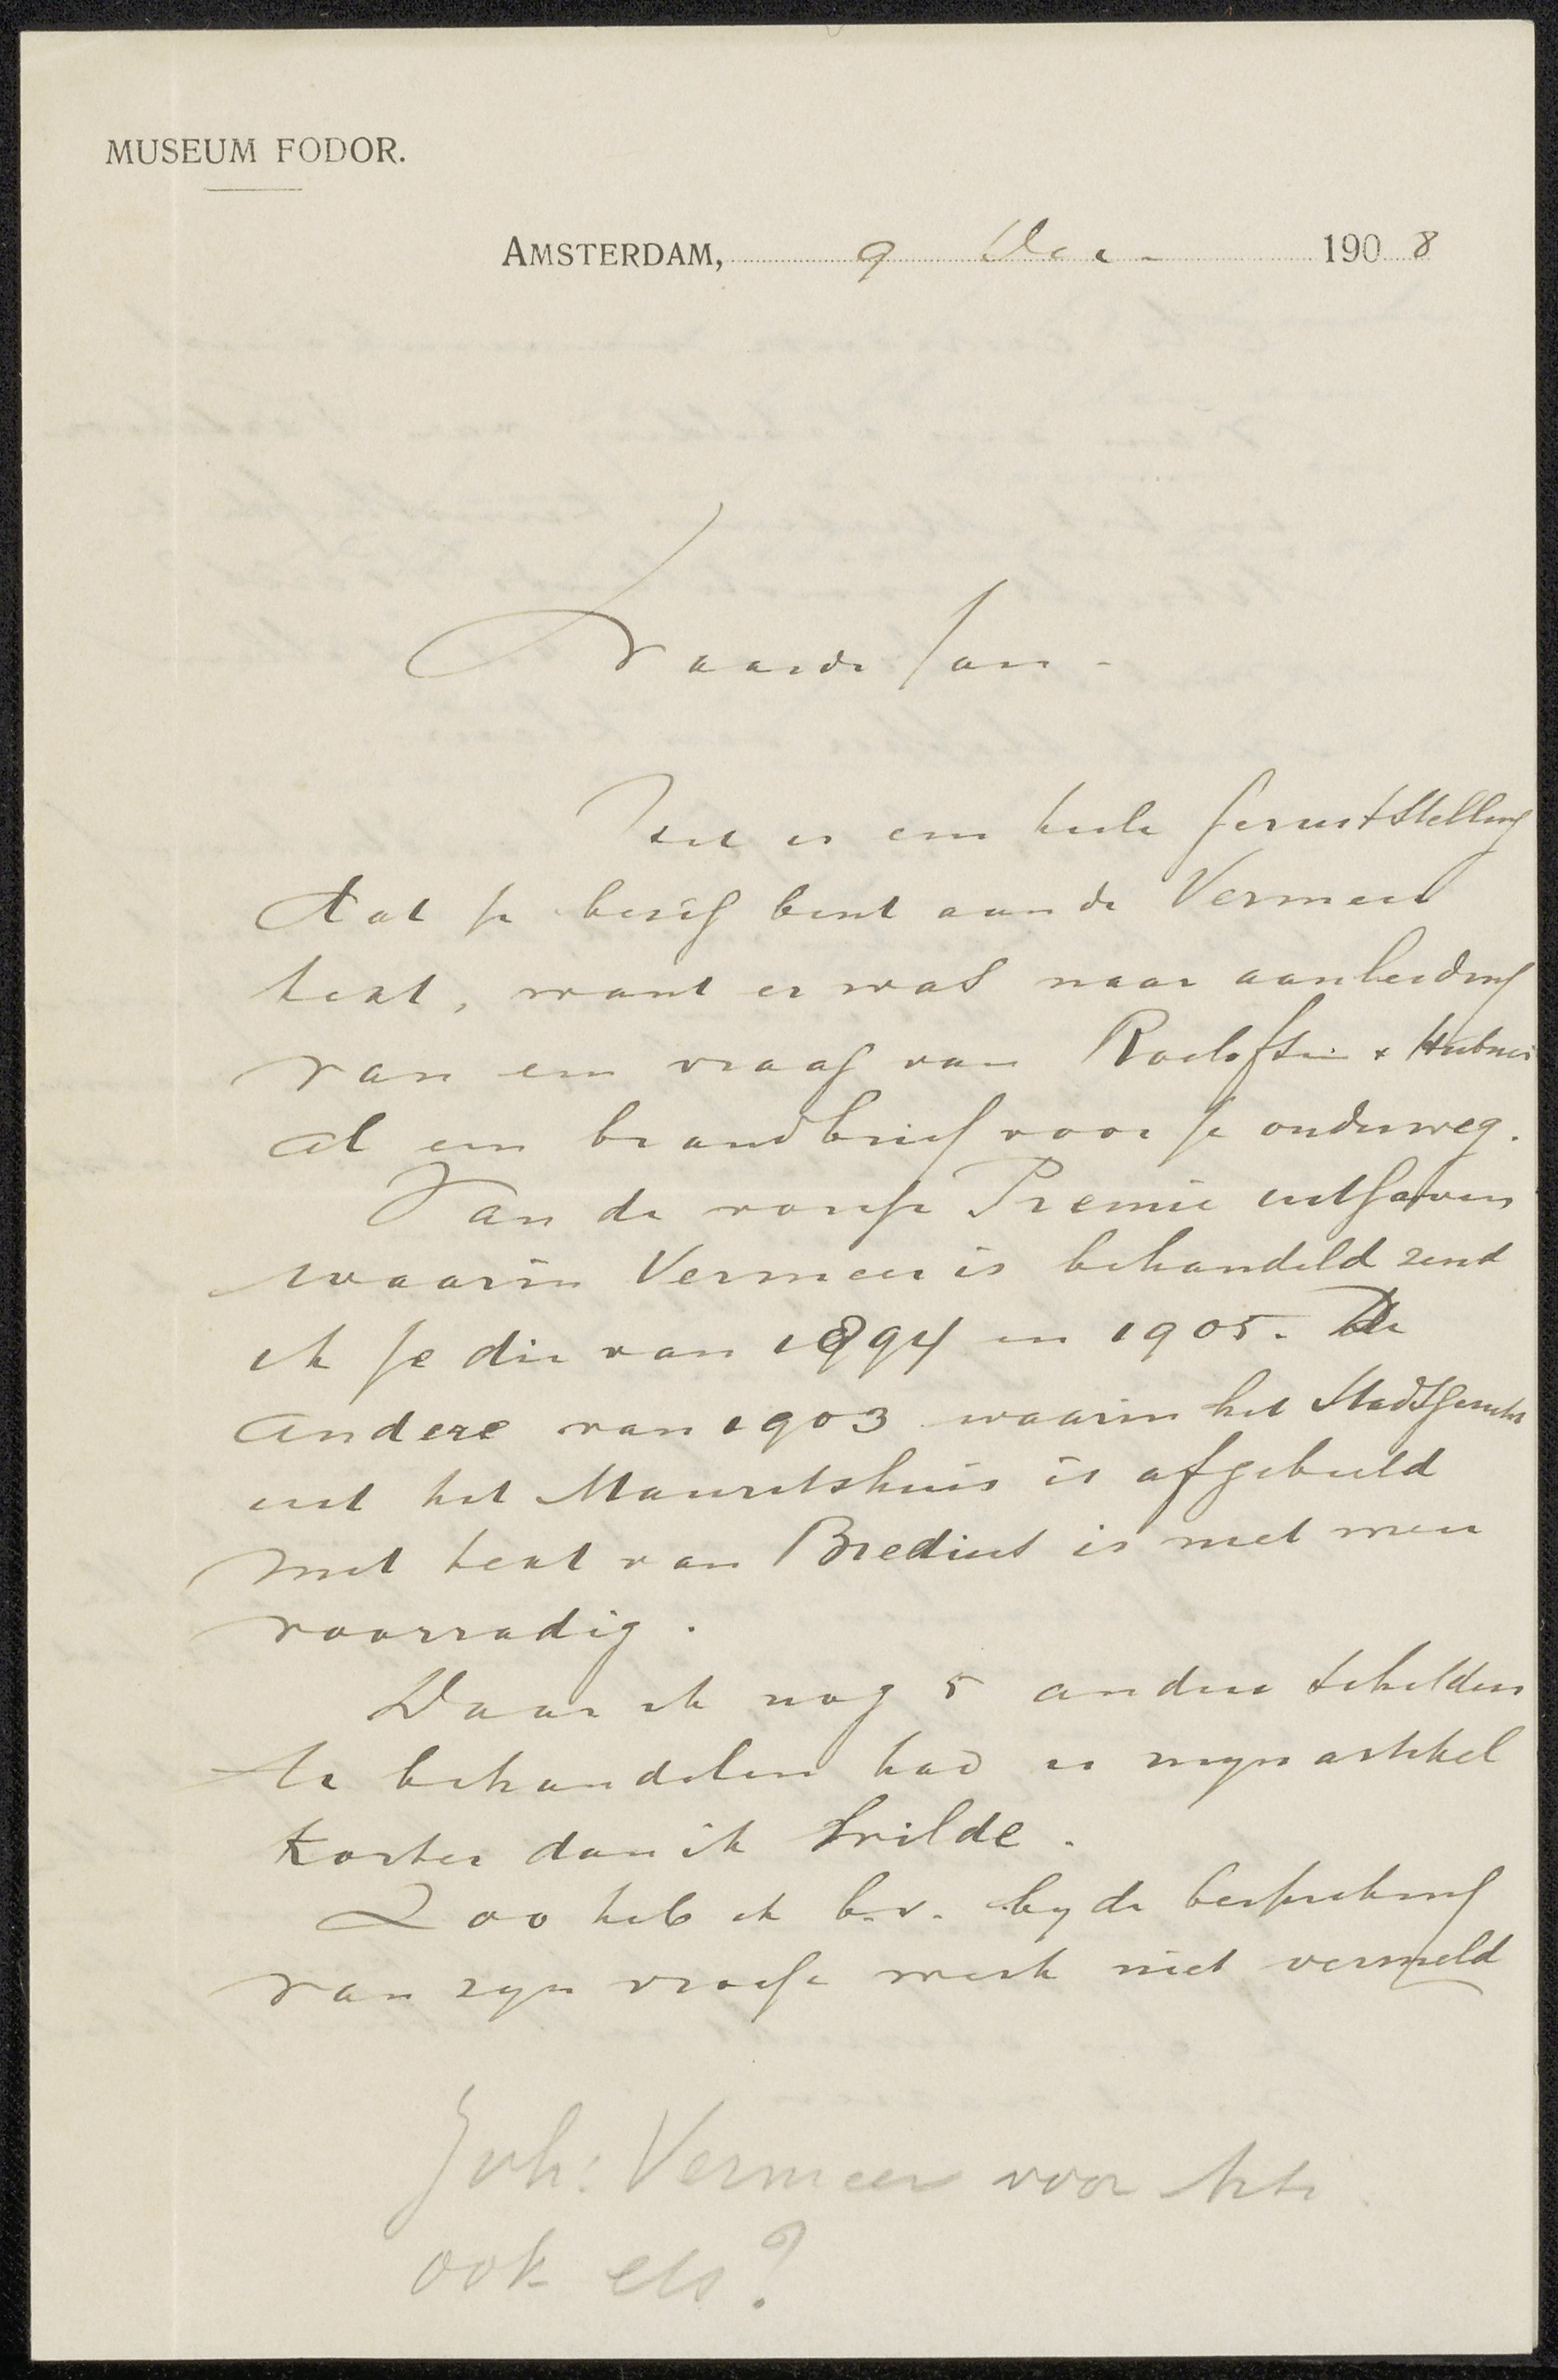 MUSEUM FODOR.
AMSTERDAM, 9 Dec. 1908
Waarde Jan.
Het is een heele geruststelling
dat je bezig bent aan de Vermeer
tekst, want er was naar aanleiding
van een vraag van Roeloffzen & Hubner
al een brandbrief voor je onderweg.
Van de vorige Premie uitgaven
waarin Vermeer is behandeld zend
ik je die van 1894 en 1905. De
andere van 1903 waarin het Stadsgezicht
uit het Mauritshuis is afgebeeld
met tekst van Bredius is niet meer
voorradig.
Daar ik nog 5 andere schilders
te behandelen had is mijn artikel
korter dan ik wilde.
Zoo heb ik b.v. bij de bespreking
van zijn vroege werk niet vermeld
Joh: Vermeer voor
ook els?